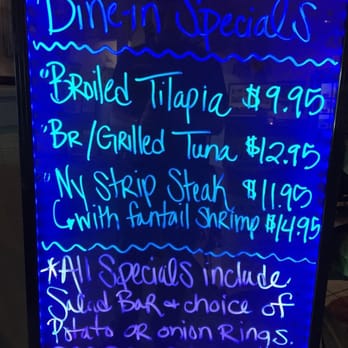 Dine-in Specials
"Broiled Tilapia $9.95
"Br/Grilled Tuna $12.95
"Ny Strip Steak $11.95
↳with fantail shrimp $14.95
*All Specials include
Salad Bar + choice of
Potato OR onion Rings.